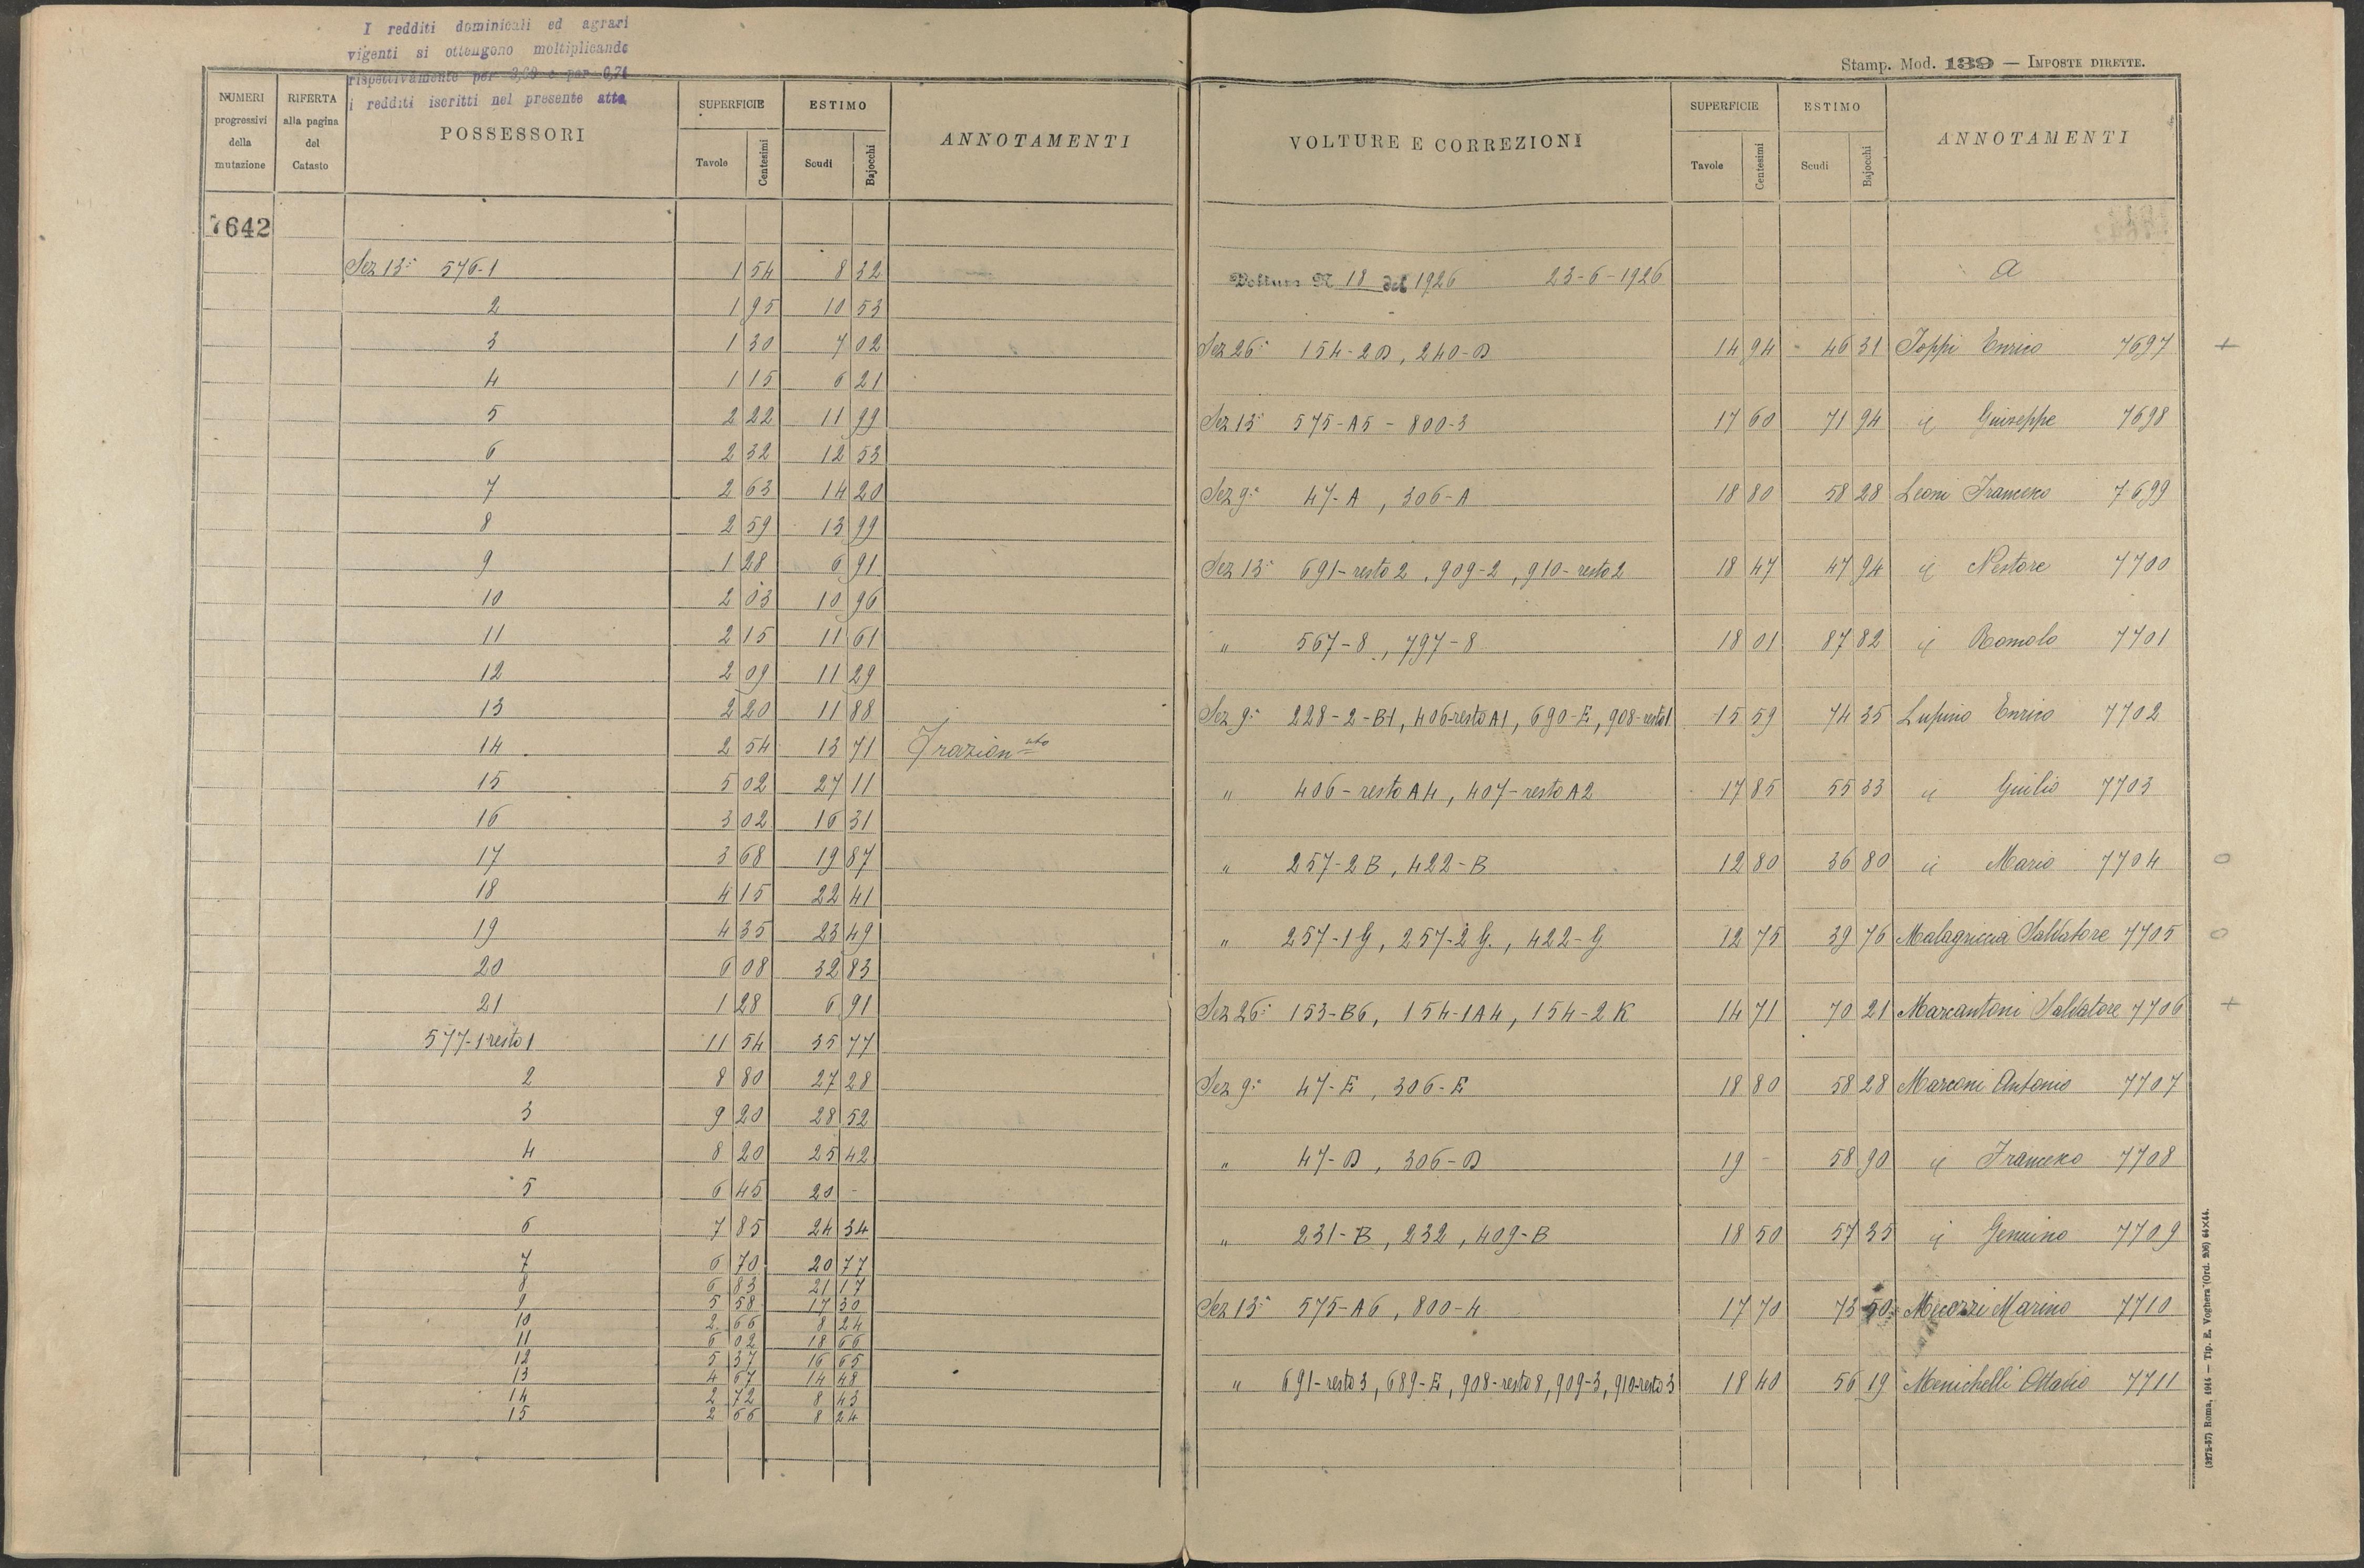 I redditi dominicali ed agrari
vigenti si ottengono moltiplicando
rispettivamente per 3,69 e per 0,74
i redditi iscritti nel presente atto
NUMERI progressivi della mutazione
RIFERTA alla pagina del Catasto
POSSESSORI
SUPERFICIE
Tavole Centesimi
ESTIMO
Scudi Bajocchi
ANNOTAMENTI
7642
Sez 13ª 576-1 1 54 8 32
2 1 95 10 53
3 1 30 7 02
4 1 15 6 21
5 2 22 11 99
6 2 32 12 53
7 2 63 14 20
8 2 59 13 99
9 1 28 6 91
10 2 03 10 96
11 2 15 11 61
12 2 09 11 29
13 2 20 11 88
14 2 54 13 71 Frazionato
15 5 02 27 11
16 3 02 16 31
17 3 68 19 87
18 4 15 22 41
19 4 35 23 49
20 6 08 32 83
21 1 28 6 91
577-1 resto 1 11 54 35 77
2 8 80 27 28
3 9 20 28 52
4 8 20 25 42
5 6 45 20 -
6 7 85 24 34
7 6 70 20 77
8 6 83 21 17
9 5 58 17 30
10 2 66 8 24
11 6 02 18 66
12 5 37 16 65
13 4 67 14 48
14 2 72 8 43
15 2 66 8 24
Stamp. Mod. 139 — IMPOSTE DIRETTE.
VOLTURE E CORREZIONI
SUPERFICIE
Tavole Centesimi
ESTIMO
Scudi Bajocchi
ANNOTAMENTI
Voltura N 18 del 1926 23-6-1926 a
Sez 26ª 154-2D, 240-D 14 94 46 31 Joppi Enrico 7697 +
Sez 13ª 575-A5 - 800-3 17 60 71 94 id Giuseppe 7698
Sez 9ª 47-A, 306-A 18 80 58 28 Leoni Francesco 7699
Sez 13ª 691-resto 2, 909-2, 910-resto 2 18 47 47 94 id Nestore 7700
" 567-8, 797-8 18 01 87 82 id Romolo 7701
Sez 9ª 228-2-B1, 406-resto A1, 690-E, 908-resto 1 15 59 74 35 Lupino Enrico 7702
" 406-resto A4, 407-resto A2 17 85 55 33 id Giulio 7703
" 257-2B, 422-B 12 80 36 80 id Mario 7704 o
" 257-1G, 257-2G, 422-G 12 75 39 76 Malagriccia Salvatore 7705 o
Sez 26ª 153-B6, 154-1A4, 154-2K 14 71 70 21 Marcantoni Salvatore 7706 +
Sez 9ª 47-E, 306-E 18 80 58 28 Marconi Antonio 7707
" 47-D, 306-D 19 - 58 90 id Francesco 7708
" 231-B, 232, 409-B 18 50 57 35 id Genuino 7709
Sez 13ª 575-A6, 800-4 17 70 73 50 Micozzi Marino 7710
" 691-resto 3, 689-E, 908-resto 8, 909-3, 910-resto 3 18 40 56 19 Menichelli Ottavio 7711
(3275-57) Roma, 1914 — Tip. E. Voghera (Ord. 206) 64×44.